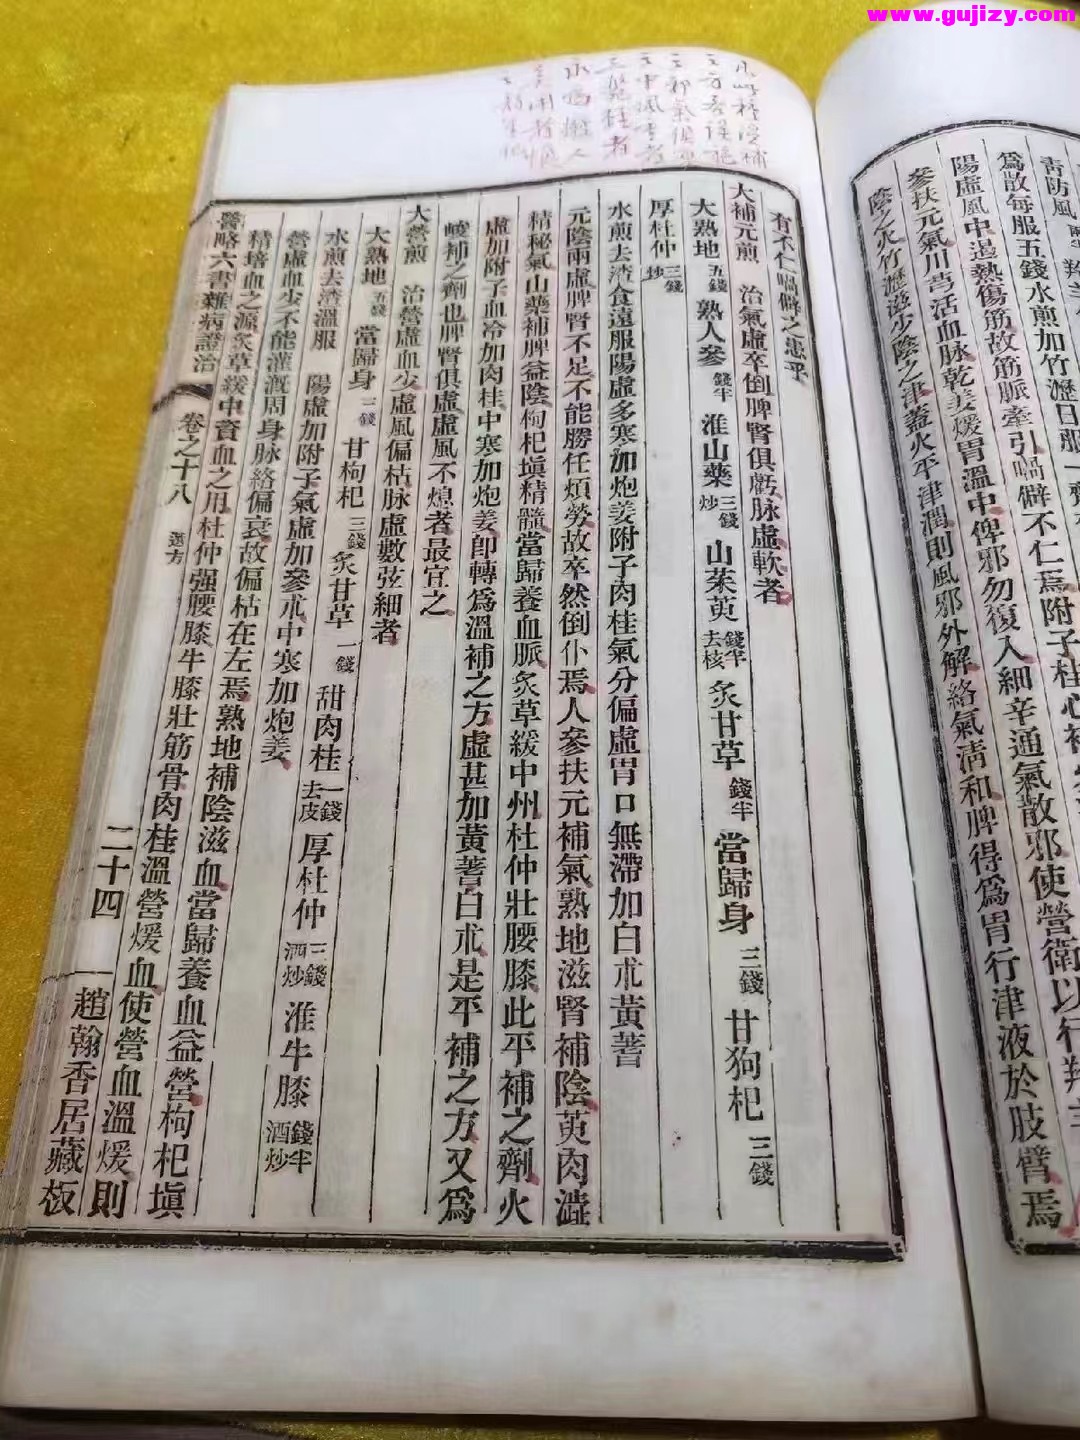 www.gujizy.com
青防風
為散每服五錢水煎加竹瀝日服一劑
陽虛風中過熱傷筋故筋脈牽引喎僻不仁焉附子桂心補
參扶元氣川芎活血脉乾姜煖胃溫中俾邪勿復入細辛通氣散邪使營衛以行
陰之火竹瀝滋少陰之津蓋火平津潤則風邪外解絡氣清和脾得為胃行津液於肢臂焉
有不仁喎僻之患乎
大補元煎 治氣虛卒倒脾腎俱虧脉虛軟者
大熟地五錢 熟人參錢半 淮山藥三錢炒 山茱萸錢半去核 炙甘草錢半 當歸身三錢 甘狗杞三錢
厚杜仲三錢炒
水煎去渣食遠服陽虛多寒加炮姜附子肉桂氣分偏虛胃口無滯加白朮黃蓍
元陰兩虛脾腎不足不能勝任煩勞故卒然倒仆焉人參扶元補氣熟地滋腎補陰萸肉澁
精秘氣山藥補脾益陰枸杞塡精髓當歸養血脈炙草緩中州杜仲壯腰膝此平補之劑火
虛加附子血冷加肉桂中寒加炮姜卽轉為溫補之方虛甚加黃蓍白朮是平補之方又為
峻補之劑也脾腎俱虛虛風不熄者最宜之
大營煎 治營虛血少虛風偏枯脉虛數弦細者
大熟地五錢 當歸身三錢 甘枸杞三錢 炙甘草一錢 甜肉桂一錢去皮 厚杜仲三錢酒炒 淮牛膝錢半酒炒
水煎去渣溫服 陽虛加附子氣虛加參朮中寒加炮姜
營虛血少不能灌溉周身脉絡偏衰故偏枯在左焉熟地補陰滋血當歸養血益營枸杞塡
精培血之源炙草緩中資血之用杜仲强腰膝牛膝壯筋骨肉桂溫營煖血使營血溫煖則
醫略六書雜病證治 卷之十八 選方 二十四 趙翰香居藏板